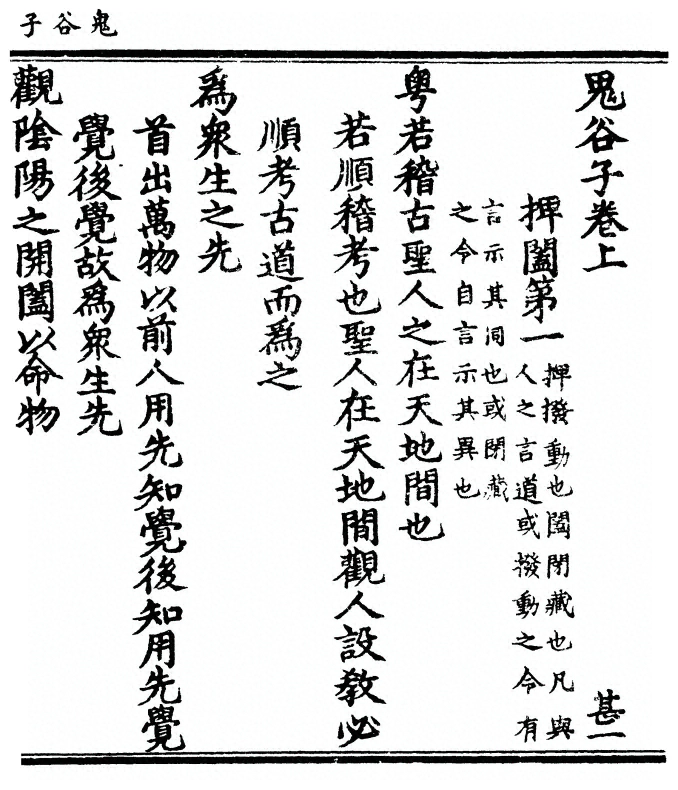 子谷鬼
鬼谷子卷上
甚一
捭闔第一
捭撥動也闔閉藏也凡與
人之言道或撥動之令有
言示其同也或閉藏
之令自言示其異也
粤若稽古聖人之在天地間也
若順稽考也聖人在天地間觀人設教必
順考古道而爲之
爲衆生之先
首出萬物以前人用先知覺後知用先覺
覺後覺故爲衆生先
觀陰陽之開闔以命物